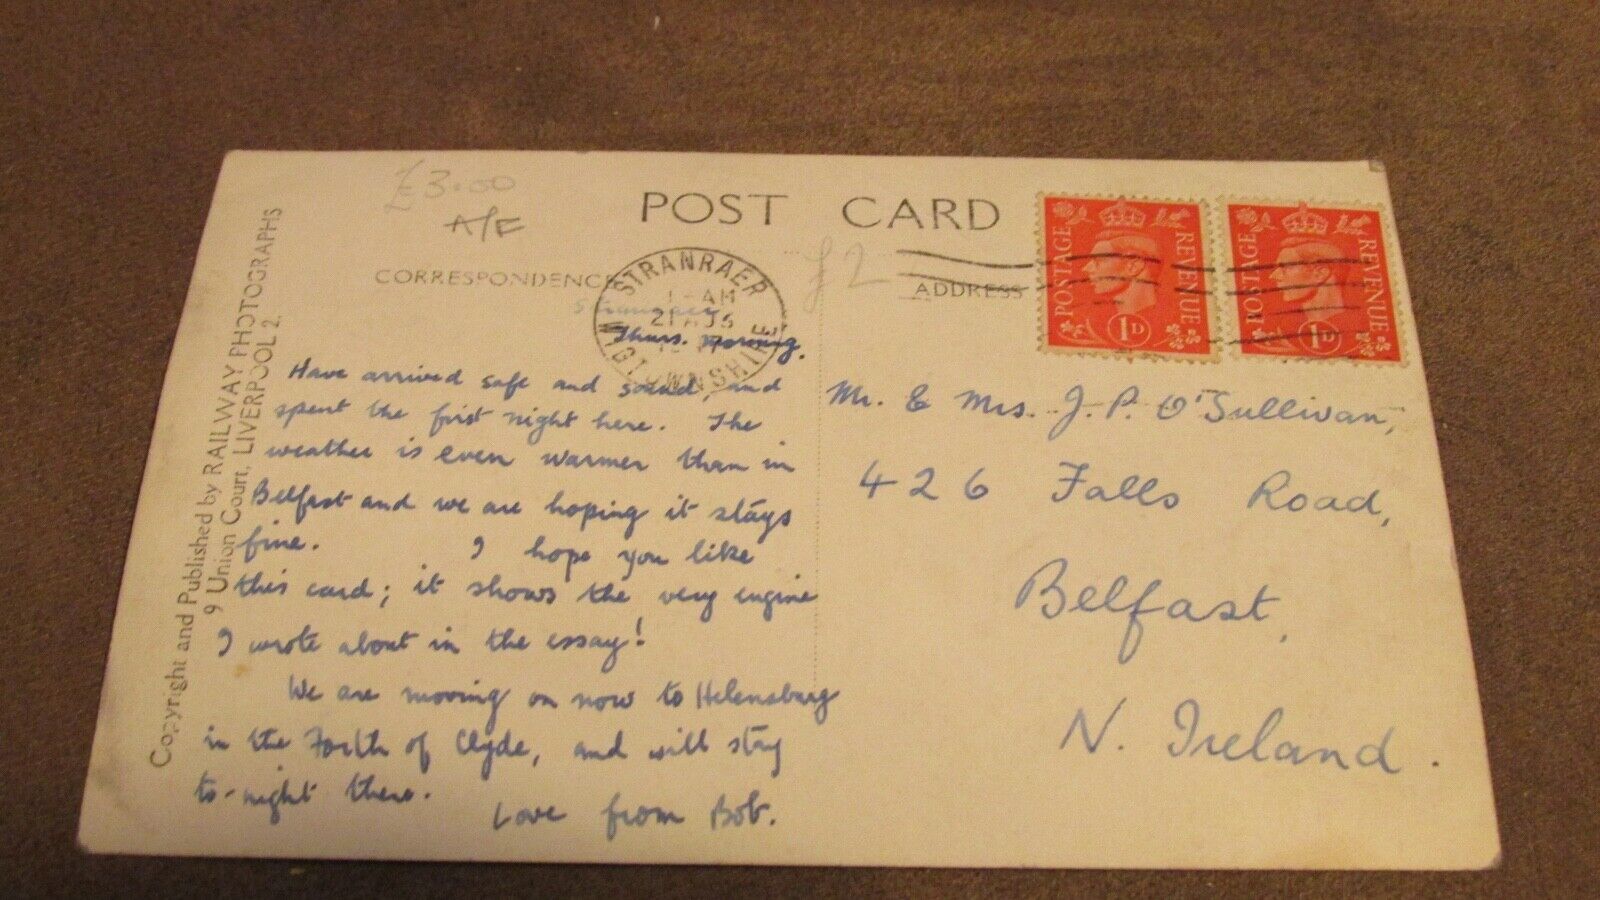 £3.00
A/F
POST CARD
CORRESPONDENCE
ADDRESS
£2
STRANRAER
AM
WIGTOWNSHIRE
POSTAGE REVENUE
1D
POSTAGE REVENUE
1D
Stranraer
Thurs. morning.
Have arrived safe and sound, and
spent the first night here. The
weather is even warmer than in
Belfast and we are hoping it stays
fine. I hope you like
this card; it shows the very engine
I wrote about in the essay!
We are moving on now to Helensburg
in the Forth of Clyde, and will stay
to-night there.
Love from Bob.
Mr. & Mrs. J. P. O'Sullivan,
426 Falls Road,
Belfast,
N. Ireland.
Copyright and Published by RAILWAY PHOTOGRAPHS
9 Union Court, LIVERPOOL 2.